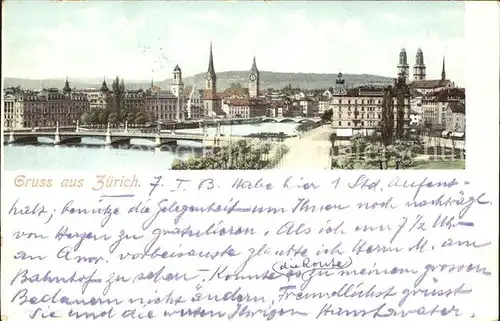 Gruss aus Zürich. 7. I B. Habe hier 1 Std. Aufent-
halt; benutze die Gelegenheit um Ihnen noch nachträgl.
von Herzen zu gratulieren. Als ich um 7½ Uhr
an vorbeisauste glaubte ich Herrn M. am
Bahnhof zu sehen. Konnte die Route zu meinem grossen
Bedauern nicht ändern. Freundlichst grüsst
Sie und die Ihrigen